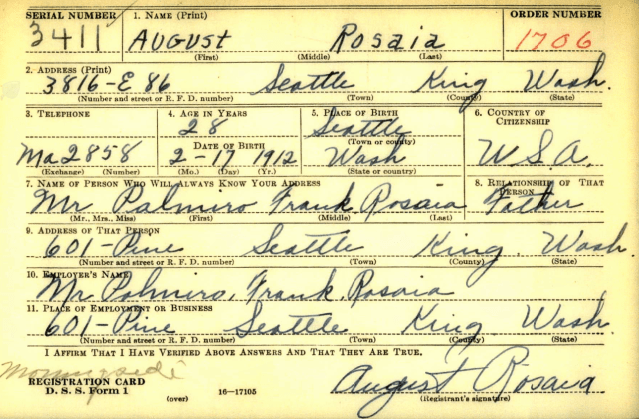 SERIAL NUMBER 1. NAME (Print) ORDER NUMBER
3411 AUGUST ROSAIA 1706
(First) (Middle) (Last)
2. ADDRESS (Print)
3816-E 86 Seattle King Wash.
(Number and street or R. F. D. number) (Town) (County) (State)
3. TELEPHONE 4. AGE IN YEARS 5. PLACE OF BIRTH 6. COUNTRY OF CITIZENSHIP
28 Seattle
(Town or county)
DATE OF BIRTH
Ma 2858 2-17 1912 Wash U.S.A.
(Exchange) (Number) (Mo.) (Day) (Yr.) (State or country)
7. NAME OF PERSON WHO WILL ALWAYS KNOW YOUR ADDRESS 8. RELATIONSHIP OF THAT PERSON
Mr Palmiro Frank Rosaia Father
(Mr., Mrs., Miss) (First) (Middle) (Last)
9. ADDRESS OF THAT PERSON
601-Pine Seattle King Wash.
(Number and street or R. F. D. number) (Town) (County) (State)
10. EMPLOYER'S NAME
Mr Palmiro, Frank Rosaia
11. PLACE OF EMPLOYMENT OR BUSINESS
601-Pine Seattle King Wash
(Number and street or R. F. D. number) (Town) (County) (State)
I AFFIRM THAT I HAVE VERIFIED ABOVE ANSWERS AND THAT THEY ARE TRUE.
REGISTRATION CARD
D. S. S. Form 1 (over) 16-17105
August F Rosaia
(Registrant's signature)